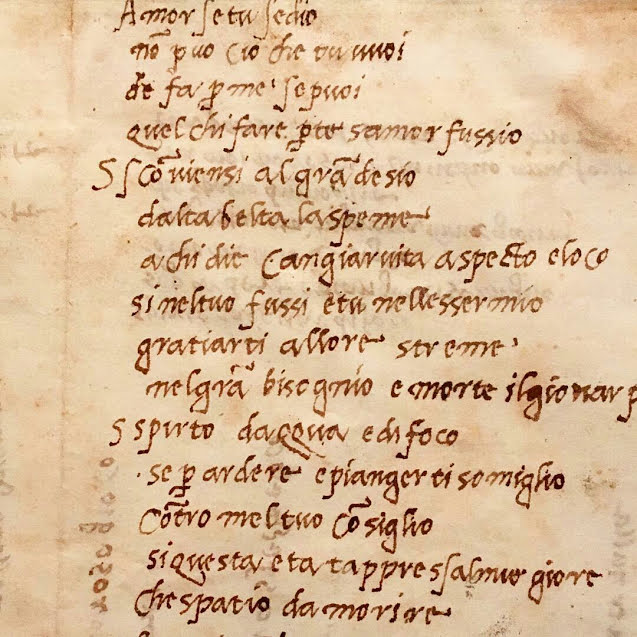 Amor se tu se dio
nō puo cio che tu vuoi
de fa p̄ me se puoi
quel chi fare p̄ te samor fussio
Scōviensi al grā desio
dalta belta la speme
a chi die cangiar vita aspecto e loco
si nel tuo fussi e tu nell esser mio
gratiarti allor streme
nel grā bisognio e morte il giovar
Sspirto dacqua e di foco
se p̄ ardere e pianger ti somiglio
Cōtro mel tuo Cōsiglio
si questa eta tappressa
Che spatio da morire